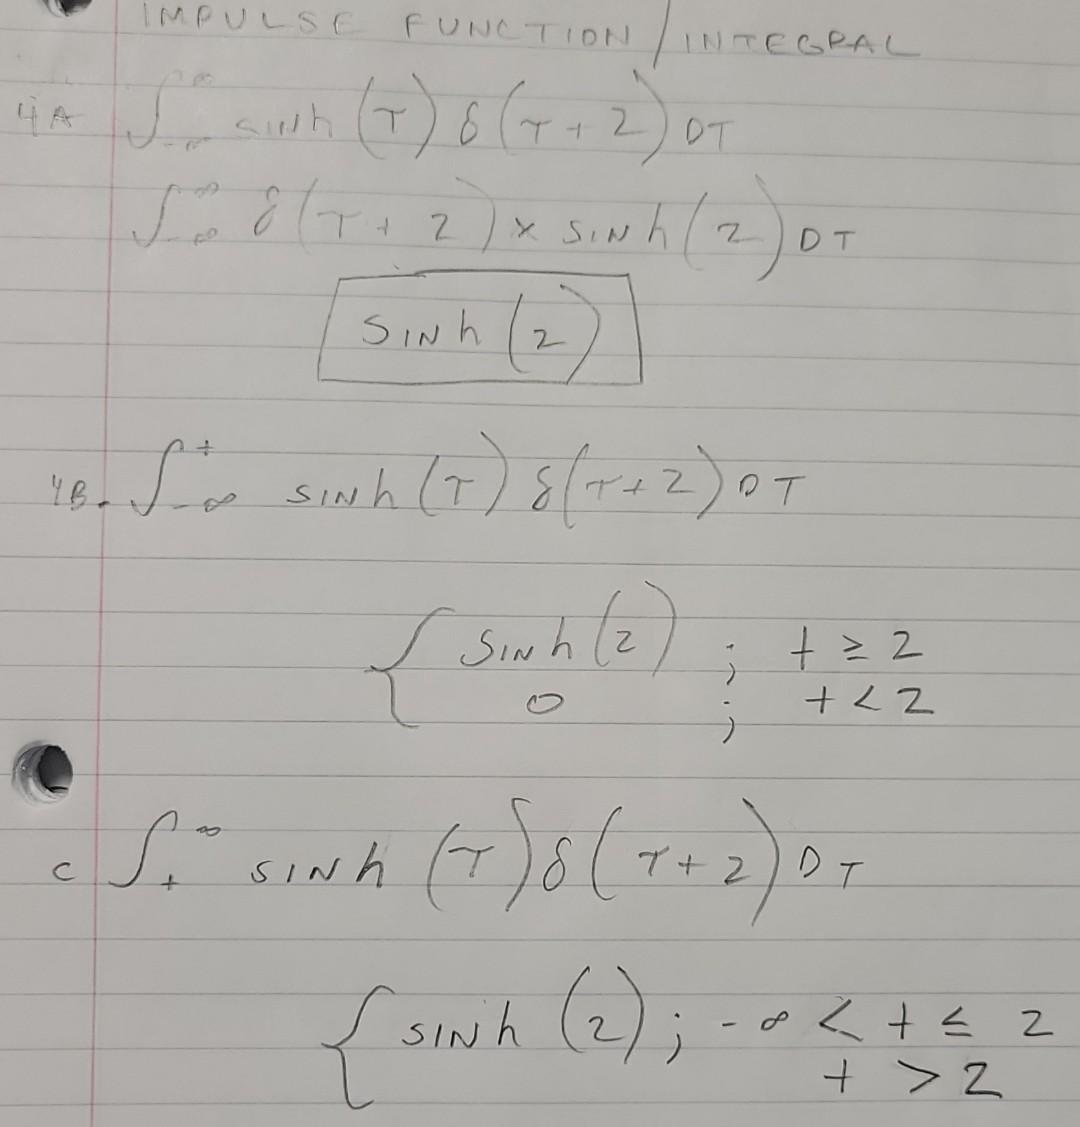 IMPULSE FUNCTION / INTEGRAL
4A ∫_{-∞}^{∞} sinh (τ) δ(τ + 2) DT
∫_{-∞}^{∞} δ(τ + 2) x SINh (2) DT
SINh (2)
4B. ∫_{-∞}^{t} SINh (τ) δ(τ+2) DT
{ SINh (2) ; t ≥ 2
0 ; t < 2
C ∫_{t}^{∞} SINh (τ) δ(τ+2) DT
{ SINh (2) ; -∞ < t ≤ 2
t > 2